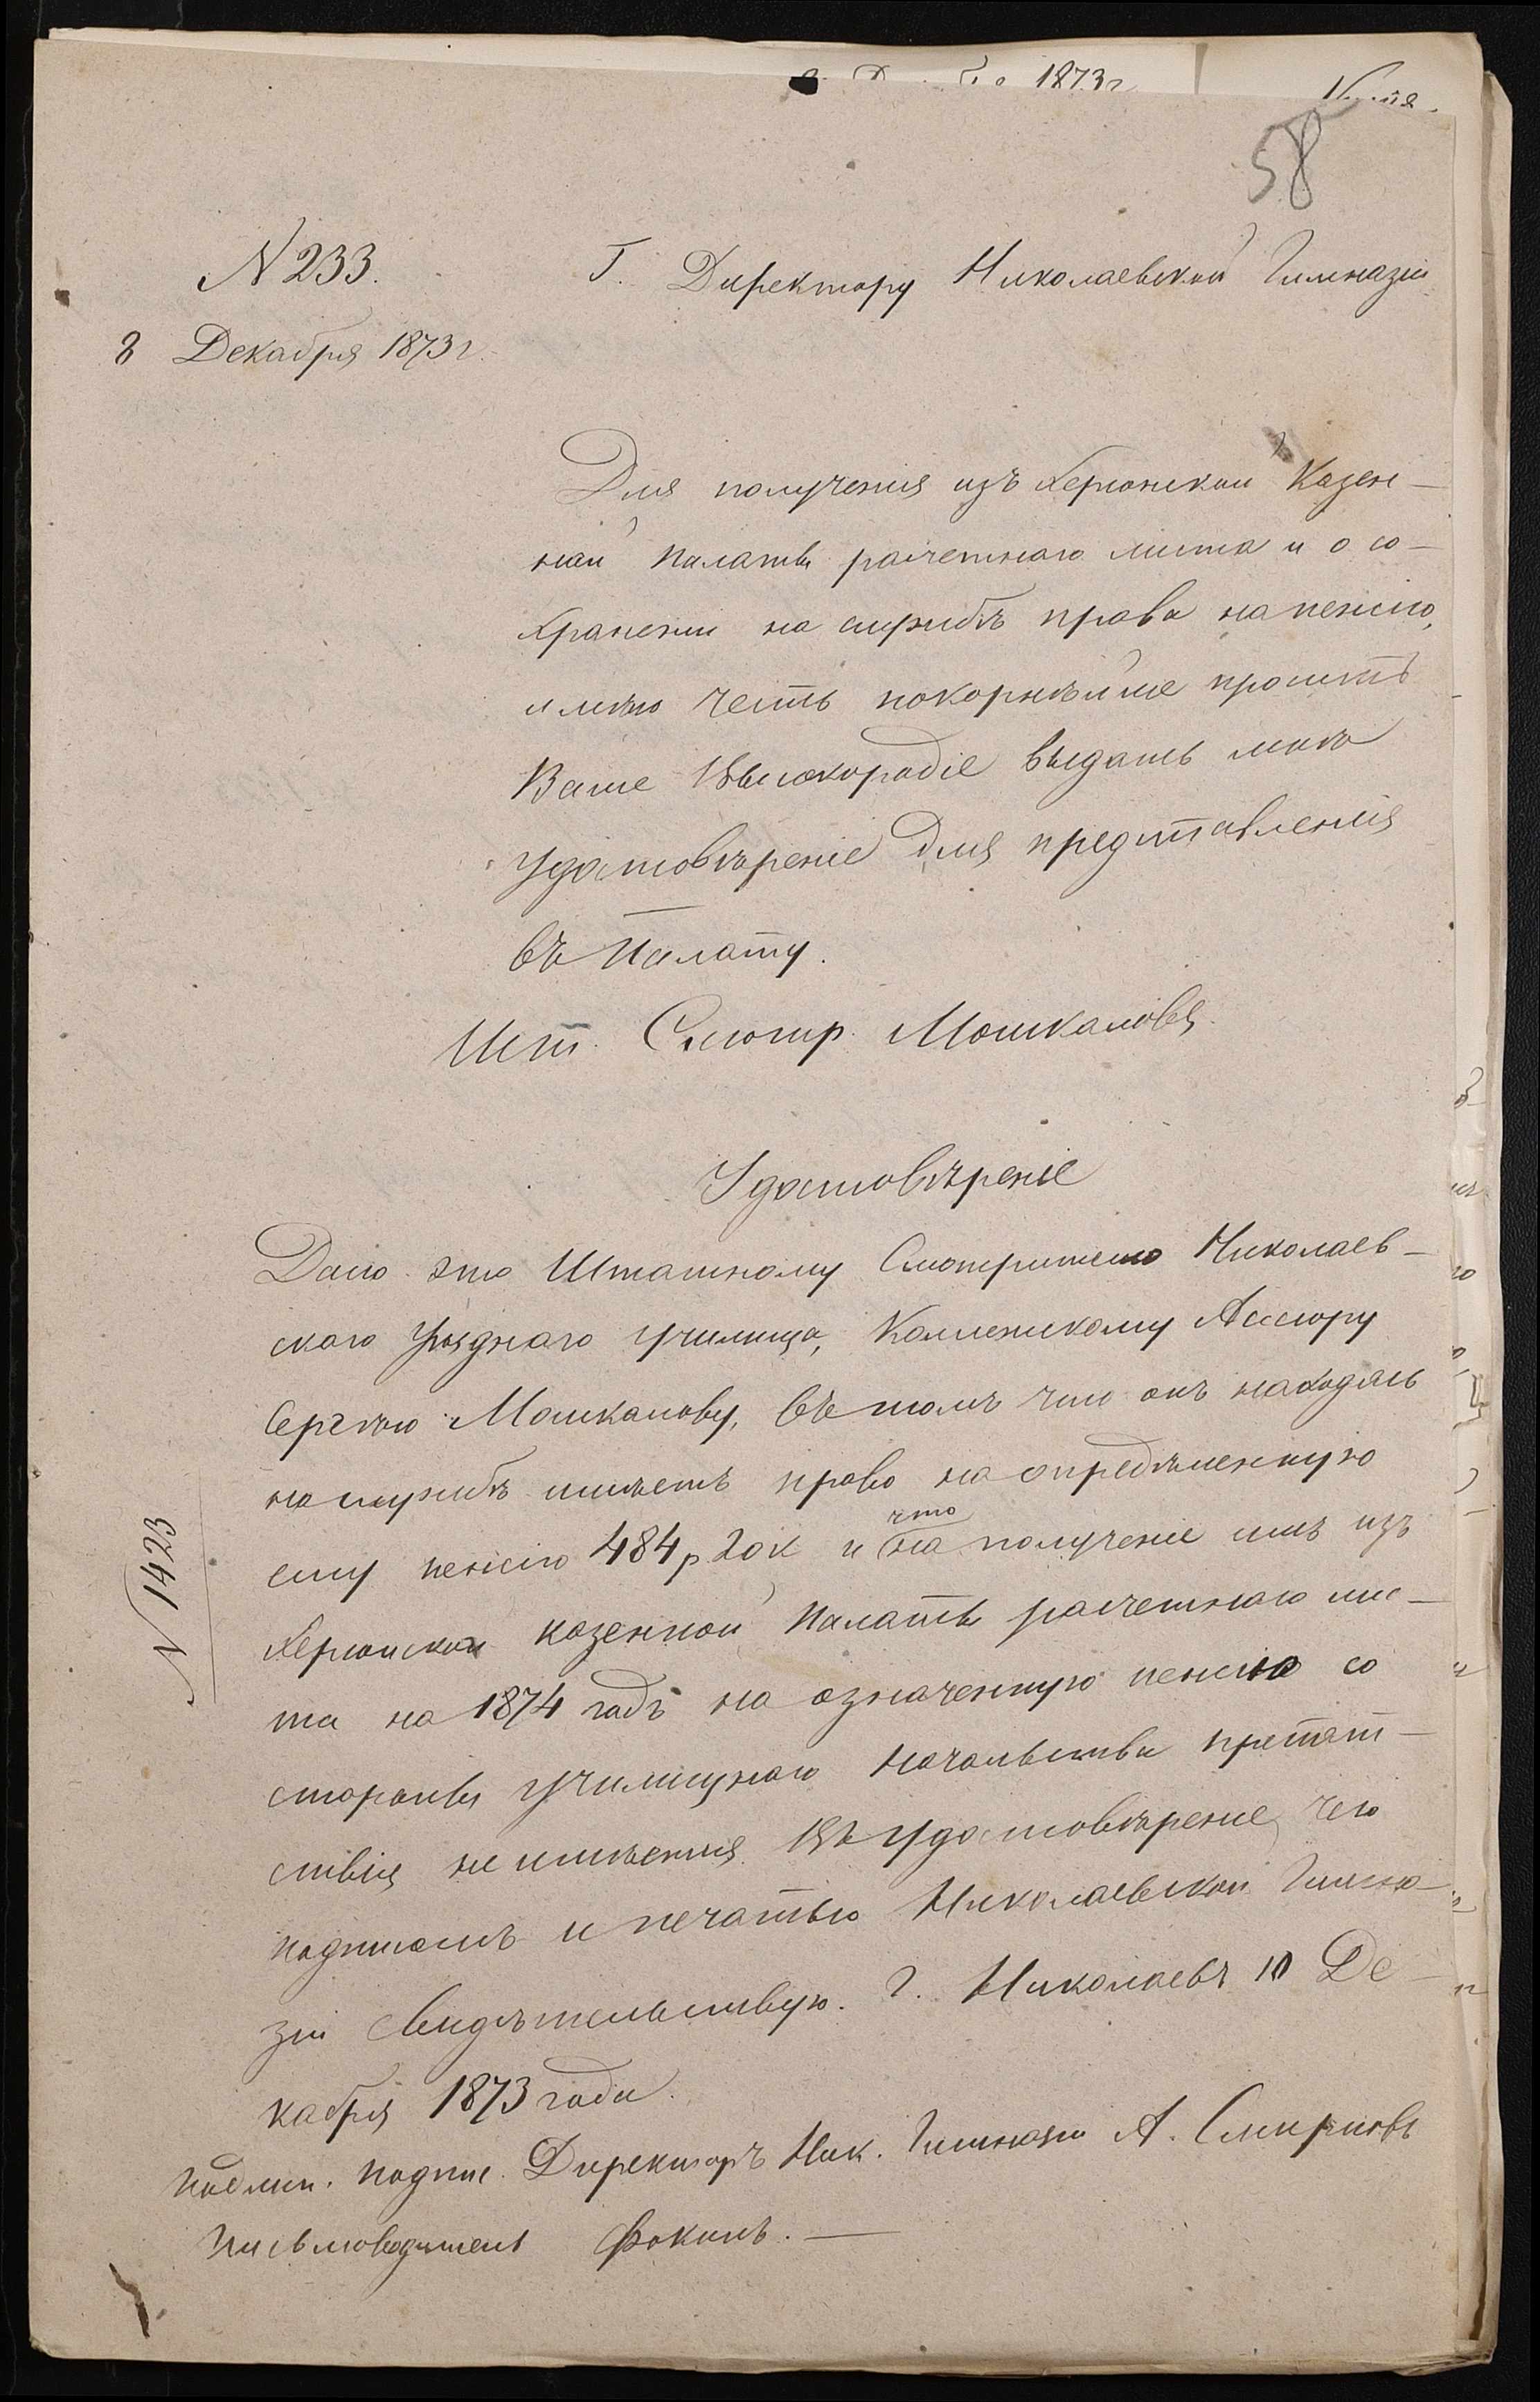 1873г
58
N 233.
Г. Директору Николаевской Гимназіи
8 Декабря 1873 г.
Для полученія изъ Херсонской Казен-
ной Палаты расчетнаго листа и о со-
храненіи на службѣ права на пенсію,
имѣю честь покорнѣйше просить
Ваше Высокородіе выдать мнѣ
удостовѣреніе для представленія
въ Палату.
Шт. Смотр. Мошкаловъ
Удостовѣреніе
Дано это Штатному Смотрителю Николаев-
скаго уѣзднаго училища, Коллежскому Ассесору
Сергѣю Мошкалову, въ томъ что онъ находясь
на службѣ имѣетъ право на опредѣленную
ему пенсію 484 р 20 к и что на полученіе имъ изъ
Херсонской казенной Палаты расчетнаго лис-
та на 1874 годъ на означенную пенсію со
стороны училищнаго начальства препят-
ствія не имѣется. Въ удостовѣреніе чего
подписомъ и печатью Николаевской Гимна-
зіи свидѣтельствую. Г. Николаевъ 10 Де-
кабря 1873 года.
N 1423
Подлин. подпис. Директоръ Ник. Гимназіи А. Смирновъ
Письмоводитель Фокинъ. —